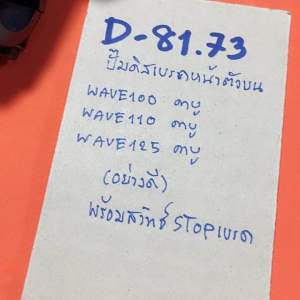 D-81.73
ปั๊มดิสเบรคหน้าตัวบน
WAVE100 คาบู
WAVE110 คาบู
WAVE125 คาบู
(อย่างดี)
พร้อมสวิทช์ STOPเบรค